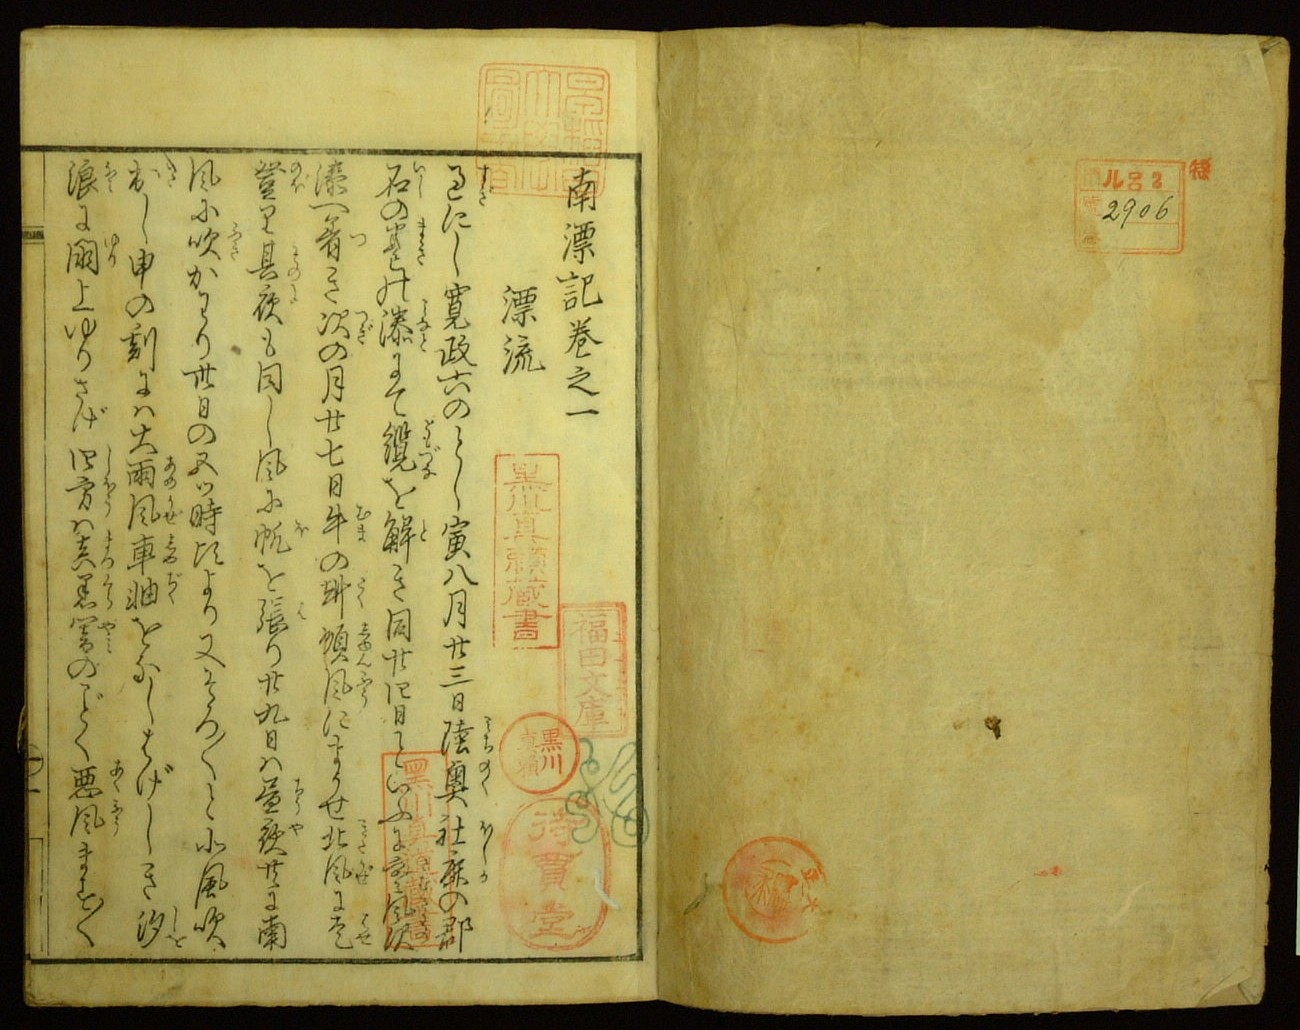 特
ル呂2
2906
南漂記巻之一
漂流
過にし寛政六のとし寅八月廿三日陸奥社鹿の郡
石の巻の湊にて纜を解き同廿四日
湊へ着き次の月廿七日午の尅順風にまかせ北風に
登り其夜も同し風に帆を張り廿九日は昼夜共に南
風に吹かわり卅日の五つ時頃より又そろ〱と小風吹
出し申の刻には大雨風車軸をながしはげしき汐
浪に閖上ゆりさげ四方は真黒闇のごとく悪風ます〱
黒川真頼蔵書
福田文庫
黒川真頼
待賈堂
黒川真道蔵書